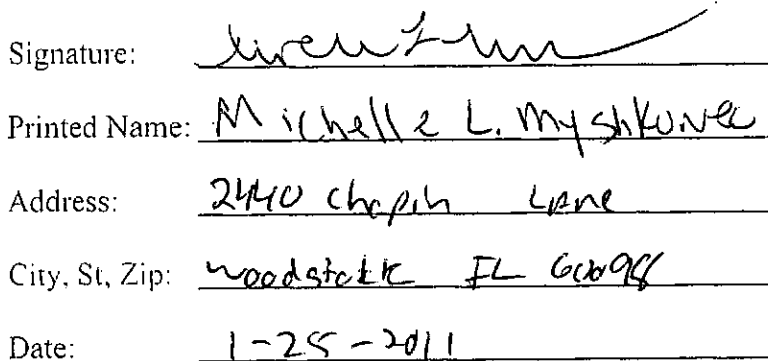 Signature:
Printed Name: Michelle L. Myshkowec
Address: 2440 Chapin Lane
City, St, Zip: Woodstock IL 60098
Date: 1-25-2011